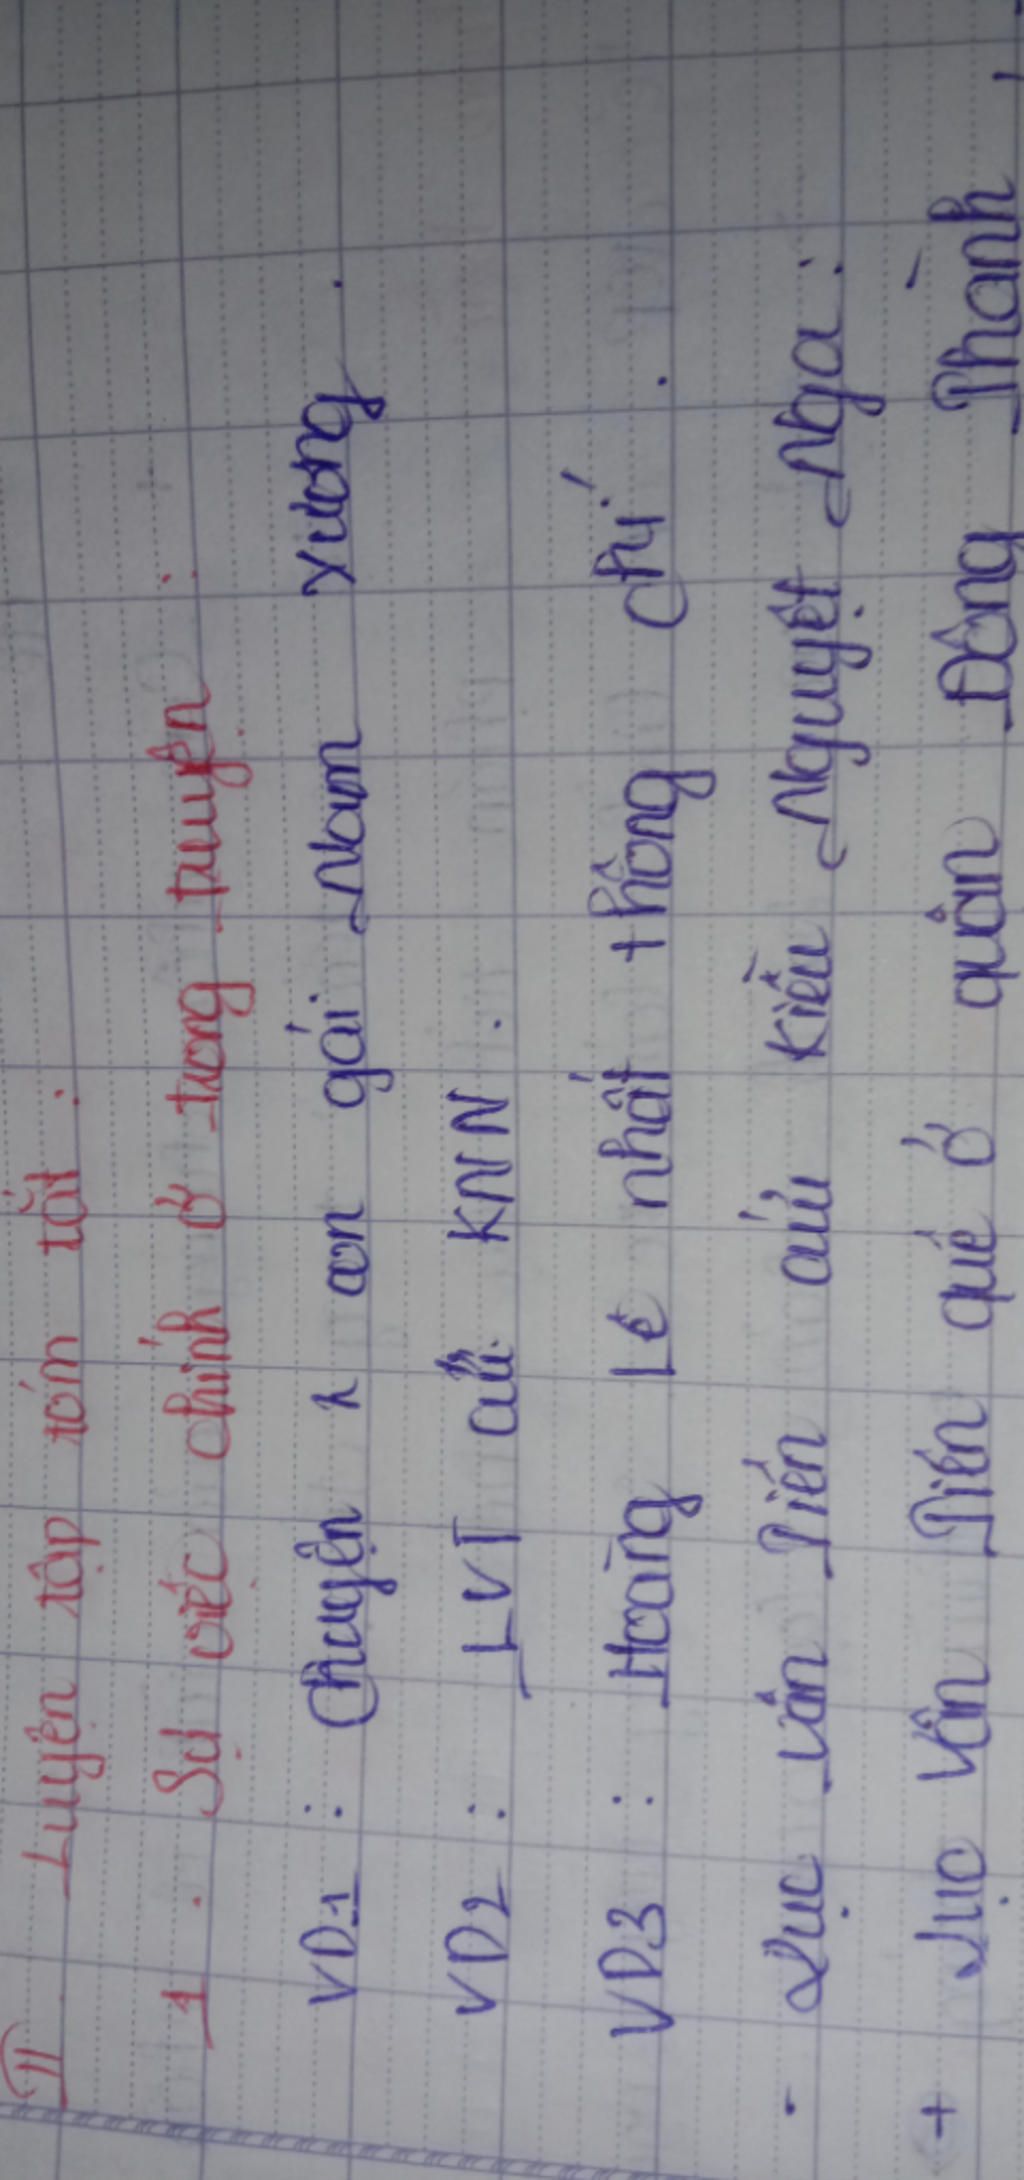 II Luyện tập tóm tắt :
1. Sự việc chính ở trong truyện :
VD1 : Chuyện n con gái Nam Xương .
VD2 : LVT cứu KNN .
VD3 : Hoàng Lê nhất thống chí .
- Lục Vân Tiên cứu Kiều Nguyệt Nga :
+ Lục Vân Tiên quê ở quận Đông Thành ,